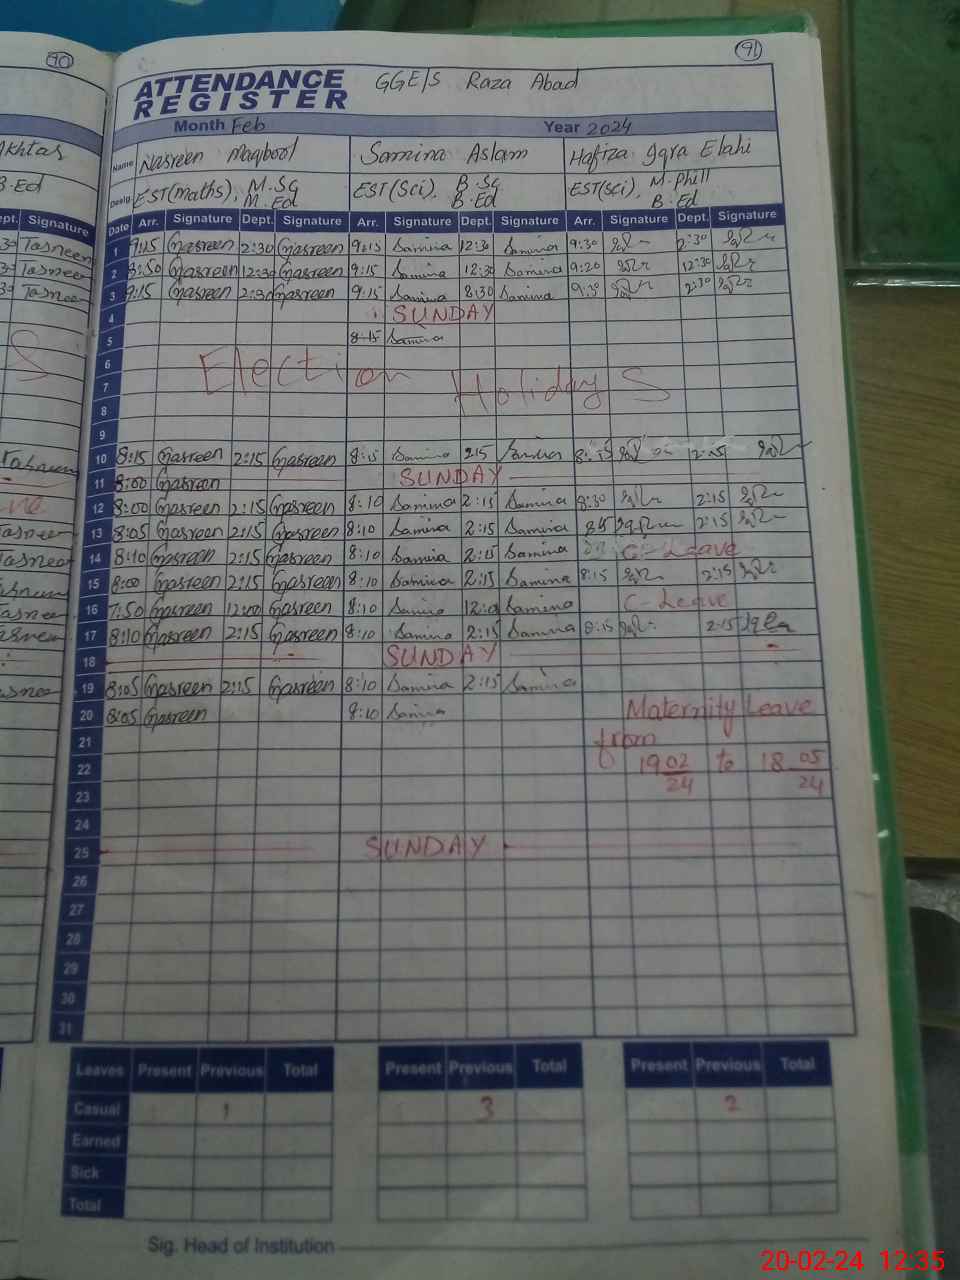 90
91
ATTENDANCE REGISTER
GGE/S Raza Abad
Month Feb Year 2024
Akhtar
B.Ed
Name Nasreen Maqbool Samina Aslam Hafiza Iqra Elahi
Desig. EST(maths), M.Sc M.Ed EST(Sci), B.Sc B.Ed EST(Sci), M.Phill B.Ed
Dept. Signature
Date Arr. Signature Dept. Signature Arr. Signature Dept. Signature Arr. Signature Dept. Signature
1 9:15 Nasreen 2:30 Nasreen 9:15 Samina 12:30 Samina 9:30 2:30
2 8:50 Nasreen 12:30 Nasreen 9:15 Samina 12:30 Samina 9:20 12:30
3 9:15 Nasreen 2:30 Nasreen 9:15 Samina 8:30 Samina 9:30 2:30
4 SUNDAY
5 8:15 Samina
6
Election Holidays
7
8
9
10 8:15 Nasreen 2:15 Nasreen 8:15 Samina 2:15 Samina 8:15 12:15
11 8:00 Nasreen SUNDAY
12 8:00 Nasreen 2:15 Nasreen 8:10 Samina 2:15 Samina 8:30 2:15
13 8:05 Nasreen 2:15 Nasreen 8:10 Samina 2:15 Samina 2:15
14 8:10 Nasreen 2:15 Nasreen 8:10 Samina 2:15 Samina C-Leave
15 8:00 Nasreen 2:15 Nasreen 8:10 Samina 2:15 Samina 8:15 2:15
16 7:50 Nasreen 12:00 Nasreen 8:10 Samina 12:00 Samina C-Leave
17 8:10 Nasreen 2:15 Nasreen 8:10 Samina 2:15 Samina 8:15 2:15
18 SUNDAY
19 8:05 Nasreen 2:15 Nasreen 8:10 Samina 2:15 Samina
20 8:05 Nasreen 8:10 Samina Maternity Leave
21 from
22 19 02/24 to 18 05/24
23
24
25 SUNDAY
26
27
28
29
30
31
Leaves Present Previous Total Present Previous Total Present Previous Total
Casual 1 3 2
Earned
Sick
Total
Sig. Head of Institution
20-02-24 12:35